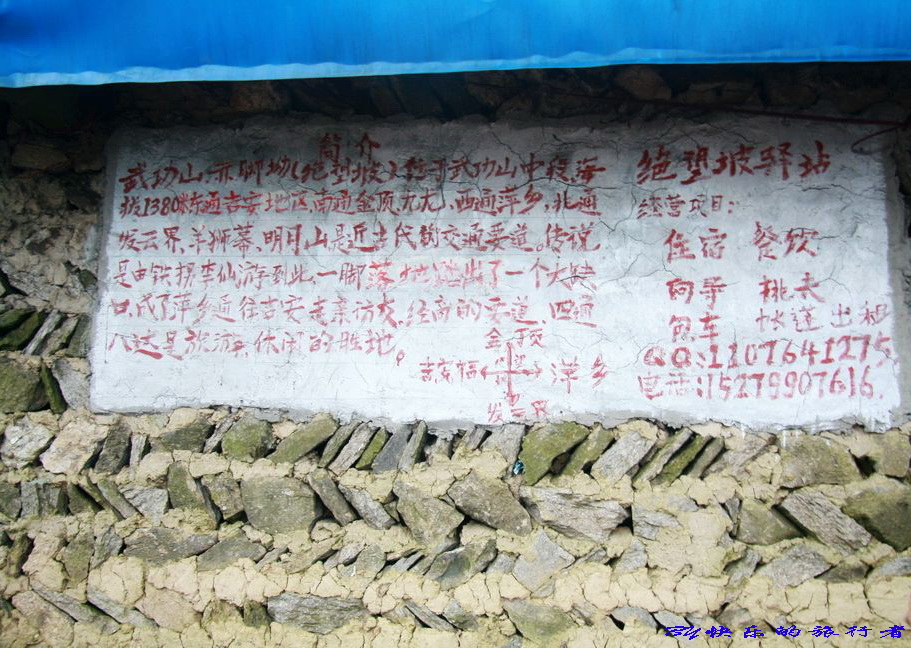 简介
武功山赤脚坳(绝望坡)位于武功山中段海
拔1380米东通吉安地区南通金顶九龙,西通萍乡,北通
发云界,羊狮幕,明月山是近古代的交通要道。传说
是由铁拐李仙游到此,一脚落地踏出了一个大缺
口,成了萍乡通往吉安走亲访友,经商的要道、四通
八达是旅游,休闲的胜地。
金顶
吉安福 萍乡
发云界
绝望坡驿站
经营项目:
住宿 餐饮
向导 挑夫
包车 帐蓬出租
QQ:1107641275
电话:15279907616
By快乐的旅行者